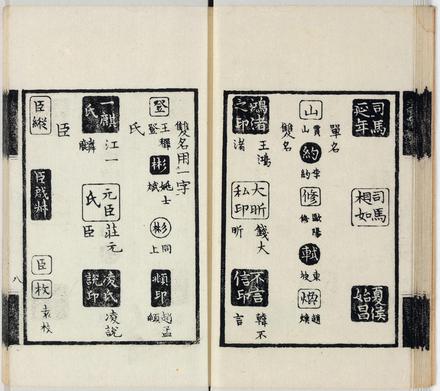 司馬延年
司馬相如
夏侯始昌
單名
山 賈山
約 李約
修 歐陽修
軾 東坡
趙
雙名
鴻渚之印 王鴻渚
大昕私印 錢大昕
不言信印 韓不言
雙名用一字
登 王穉登
彬 姚士
彬 同上
頫印 趙孟頫
氏
一麒氏 江一麟
元臣氏 莊元臣
凌氏說印 凌說
臣
臣縱
臣
臣枚 袁枚
八